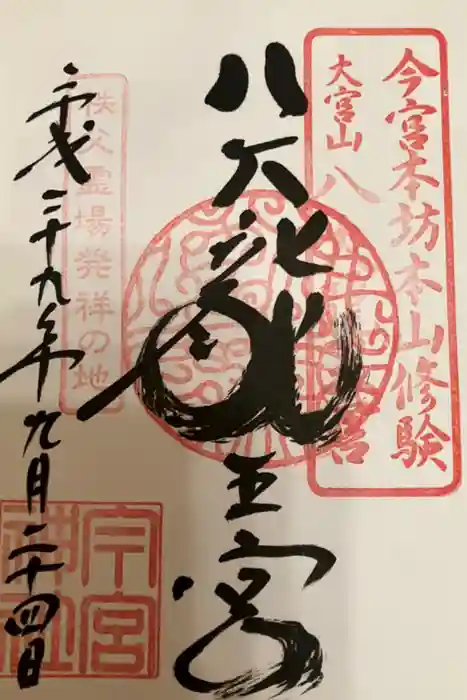 今宮本坊本山修験
大宮山八
八大龍王宮
秩父霊場発祥の地
平成二十九年九月二十四日
今宮
神社